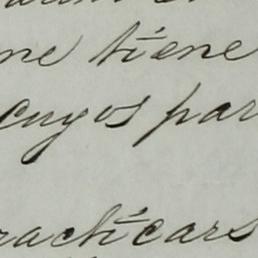 ne tiene
cuyos par
racticars